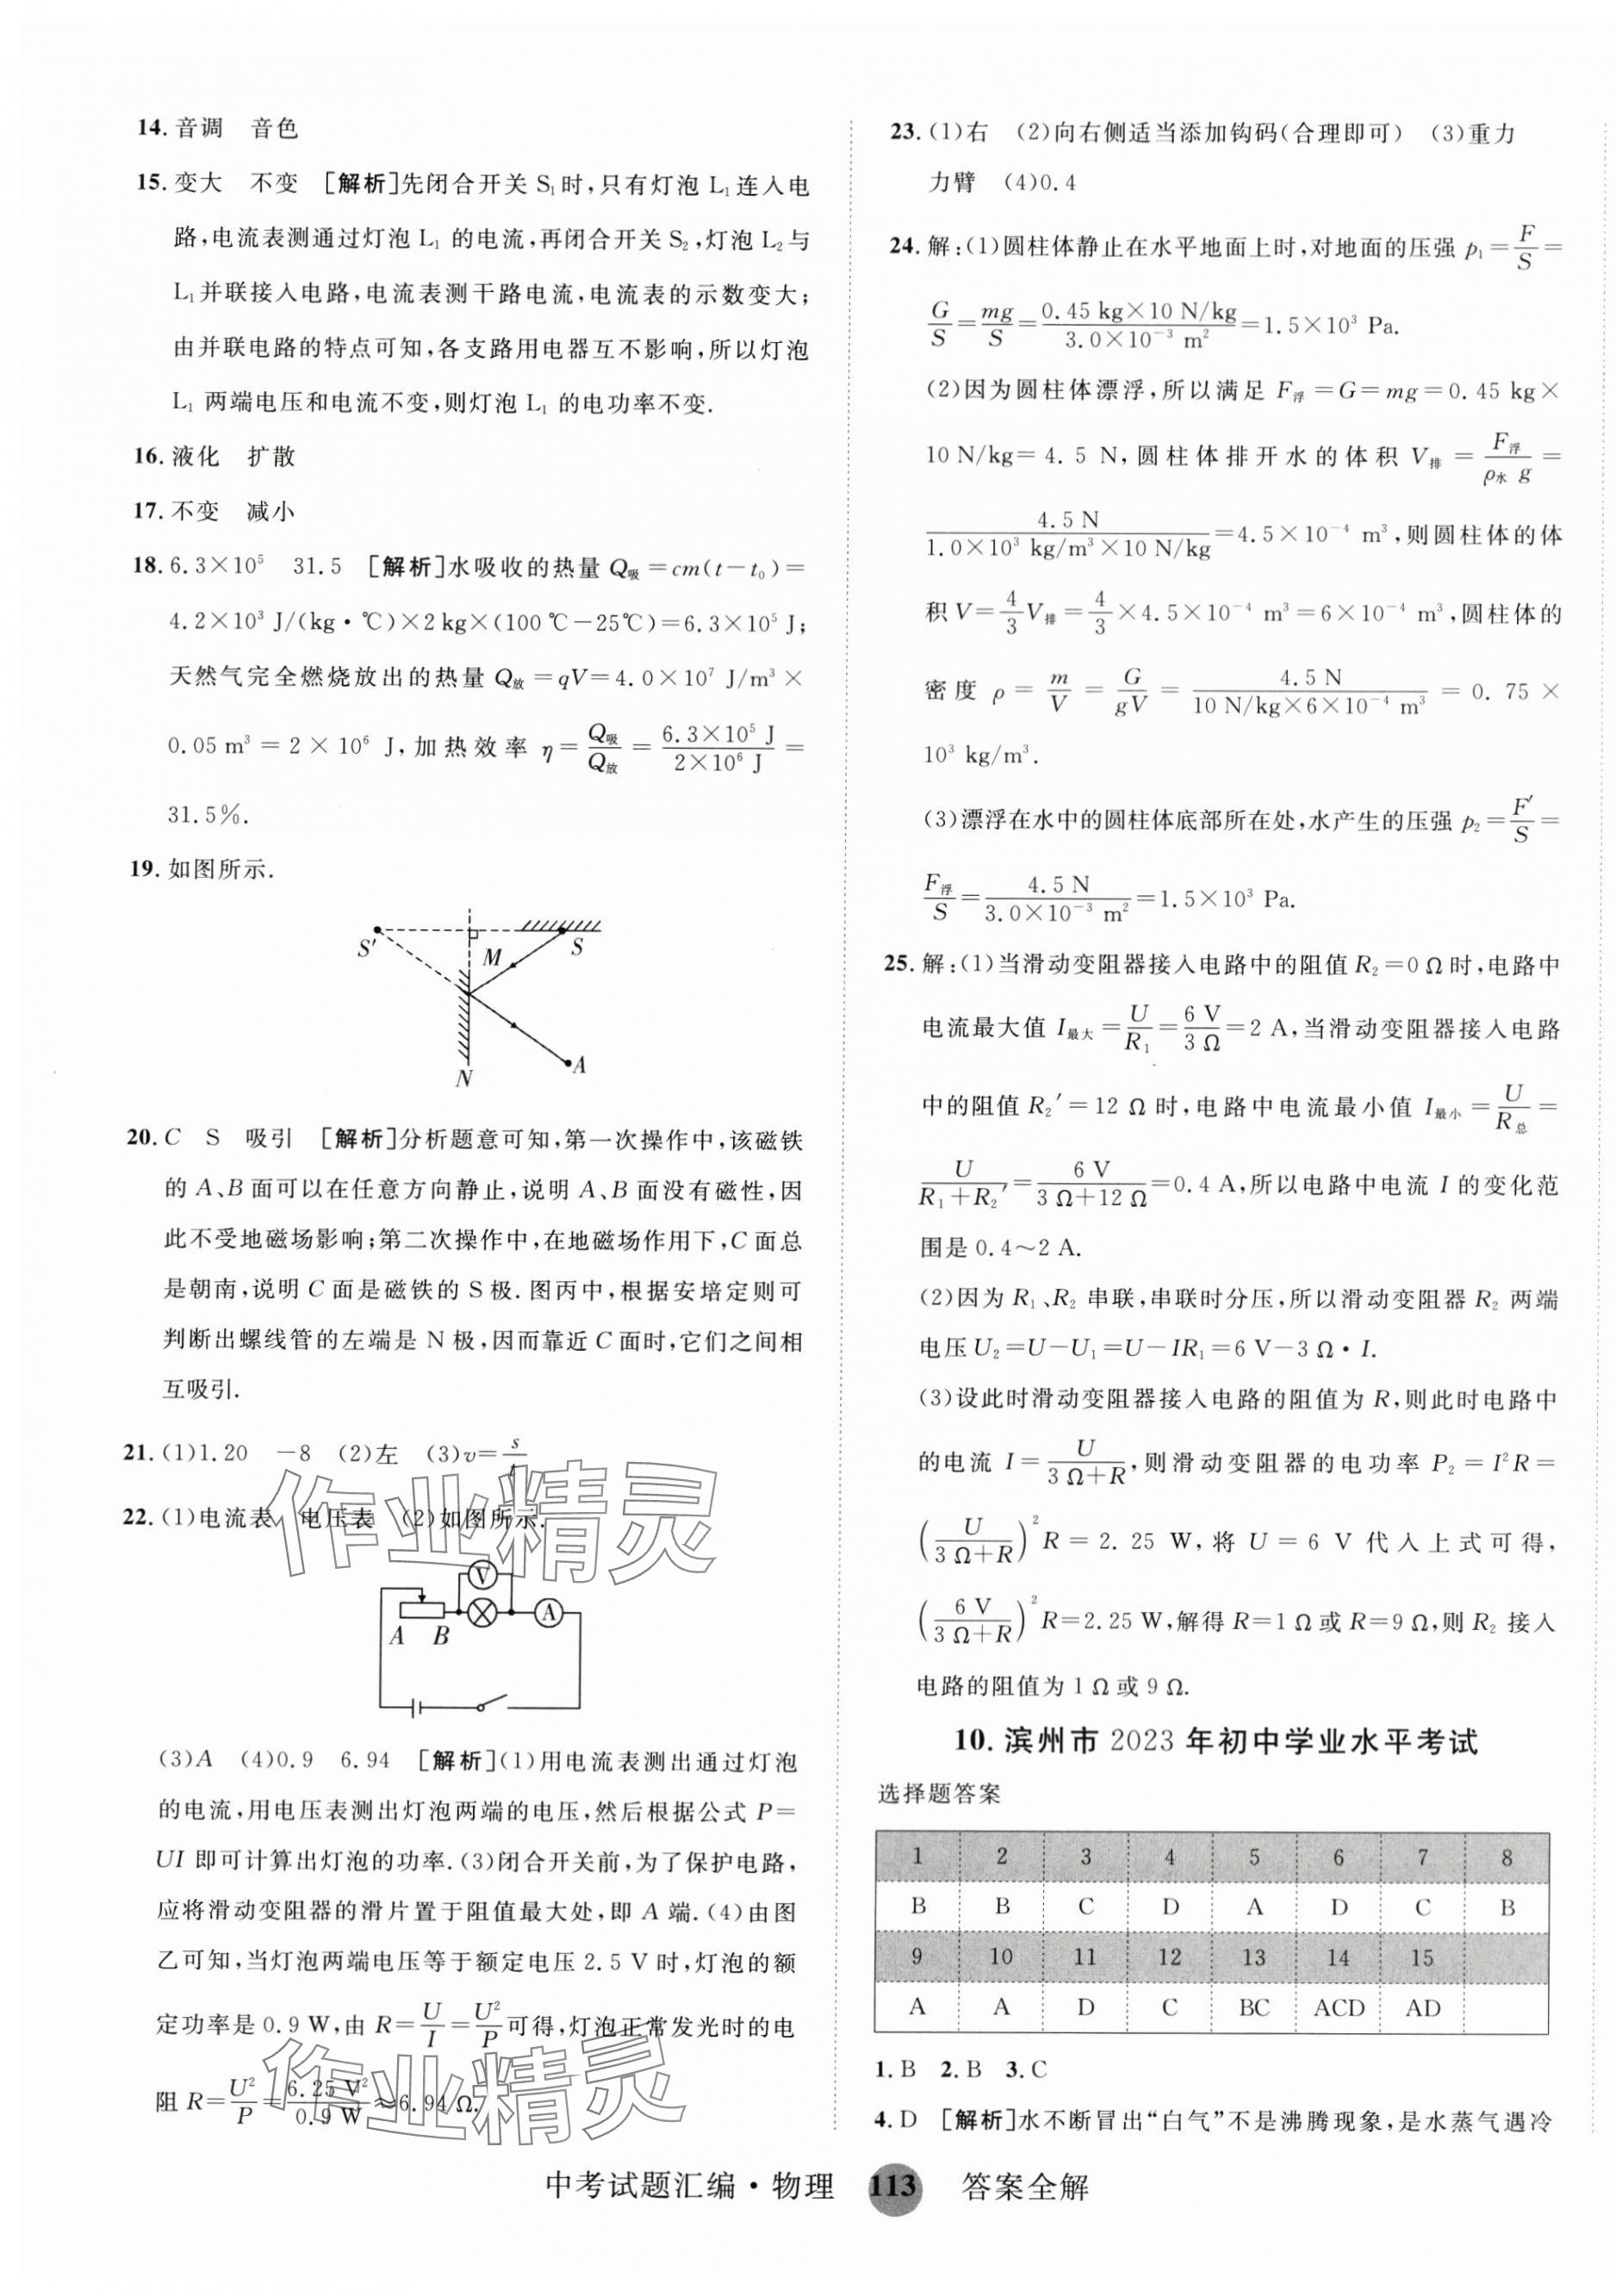 14.音调　音色
15.变大　不变　[解析]先闭合开关 S₁时,只有灯泡 L₁连入电
路,电流表测通过灯泡 L₁ 的电流,再闭合开关 S₂,灯泡 L₂与
L₁并联接入电路,电流表测干路电流,电流表的示数变大;
由并联电路的特点可知,各支路用电器互不影响,所以灯泡
L₁ 两端电压和电流不变,则灯泡 L₁ 的电功率不变.
16.液化　扩散
17.不变　减小
18.6.3×10⁵　31.5　[解析]水吸收的热量 Q吸=cm(t-t₀)=
4.2×10³ J/(kg·℃)×2 kg×(100 ℃-25℃)=6.3×10⁵ J;
天然气完全燃烧放出的热量 Q放=qV=4.0×10⁷ J/m³×
0.05 m³=2×10⁶ J,加热效率 η=Q吸/Q放=6.3×10⁵ J/2×10⁶ J=
31.5%.
19.如图所示.
S′ M S
N A
20.C　S　吸引　[解析]分析题意可知,第一次操作中,该磁铁
的 A、B 面可以在任意方向静止,说明 A、B 面没有磁性,因
此不受地磁场影响;第二次操作中,在地磁场作用下,C 面总
是朝南,说明 C 面是磁铁的 S 极.图丙中,根据安培定则可
判断出螺线管的左端是 N 极,因而靠近 C 面时,它们之间相
互吸引.
21.(1)1.20　-8　(2)左　(3)v=s/t
22.(1)电流表　电压表　(2)如图所示.
V
A
A B
(3)A　(4)0.9　6.94　[解析](1)用电流表测出通过灯泡
的电流,用电压表测出灯泡两端的电压,然后根据公式 P=
UI 即可计算出灯泡的功率.(3)闭合开关前,为了保护电路,
应将滑动变阻器的滑片置于阻值最大处,即 A 端.(4)由图
乙可知,当灯泡两端电压等于额定电压 2.5 V 时,灯泡的额
定功率是 0.9 W,由 R=U/I=U²/P可得,灯泡正常发光时的电
阻 R=U²/P=6.25 V²/0.9 W≈6.94 Ω.
作业精灵
作业精灵
23.(1)右　(2)向右侧适当添加钩码(合理即可)　(3)重力
力臂　(4)0.4
24.解:(1)圆柱体静止在水平地面上时,对地面的压强 p₁=F/S=
G/S=mg/S=0.45 kg×10 N/kg/3.0×10⁻³ m²=1.5×10³ Pa.
(2)因为圆柱体漂浮,所以满足 F浮=G=mg=0.45 kg×
10 N/kg=4.5 N,圆柱体排开水的体积 V排=F浮/ρ水 g=
4.5 N/1.0×10³ kg/m³×10 N/kg=4.5×10⁻⁴ m³,则圆柱体的体
积 V=4/3V排=4/3×4.5×10⁻⁴ m³=6×10⁻⁴ m³,圆柱体的
密度 ρ=m/V=G/gV=4.5 N/10 N/kg×6×10⁻⁴ m³=0.75×
10³ kg/m³.
(3)漂浮在水中的圆柱体底部所在处,水产生的压强 p₂=F′/S=
F浮/S=4.5 N/3.0×10⁻³ m²=1.5×10³ Pa.
25.解:(1)当滑动变阻器接入电路中的阻值 R₂=0 Ω 时,电路中
电流最大值 I最大=U/R₁=6 V/3 Ω=2 A,当滑动变阻器接入电路
中的阻值 R₂′=12 Ω 时,电路中电流最小值 I最小=U/R总=
U/R₁+R₂′=6 V/3 Ω+12 Ω=0.4 A,所以电路中电流 I 的变化范
围是 0.4～2 A.
(2)因为 R₁、R₂ 串联,串联时分压,所以滑动变阻器 R₂ 两端
电压 U₂=U-U₁=U-IR₁=6 V-3 Ω·I.
(3)设此时滑动变阻器接入电路的阻值为 R,则此时电路中
的电流 I=U/3 Ω+R,则滑动变阻器的电功率 P₂=I²R=
(U/3 Ω+R)²R=2.25 W,将 U=6 V 代入上式可得,
(6 V/3 Ω+R)²R=2.25 W,解得 R=1 Ω 或 R=9 Ω,则 R₂ 接入
电路的阻值为 1 Ω 或 9 Ω.
10.滨州市 2023 年初中学业水平考试
选择题答案
1 2 3 4 5 6 7 8
B B C D A D C B
9 10 11 12 13 14 15
A A D C BC ACD AD
1.B　2.B　3.C
4.D　[解析]水不断冒出“白气”不是沸腾现象,是水蒸气遇冷
中考试题汇编·物理　113　答案全解